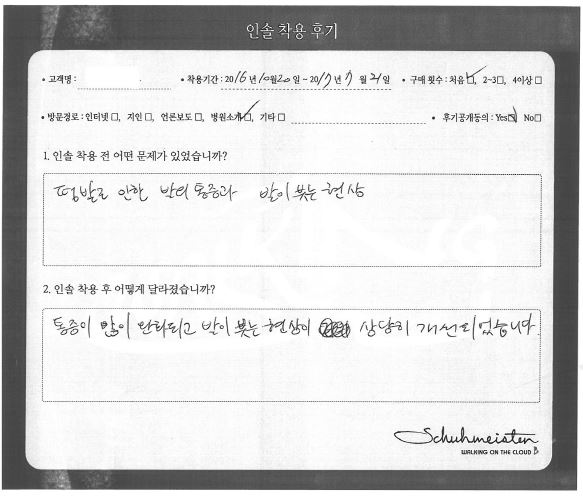 인솔 착용 후기
• 고객명 : • 착용기간 : 2016년 10월 20일 ~ 2017년 7월 21일 • 구매 횟수 : 처음☑, 2~3□, 4이상□
• 방문경로 : 인터넷□, 지인□, 언론보도□, 병원소개☑, 기타□ • 후기공개동의 : Yes☑ No□
1. 인솔 착용 전 어떤 문제가 있었습니까?
평발로 인한 발의 통증과 발이 붓는 현상
2. 인솔 착용 후 어떻게 달라졌습니까?
통증이 많이 완화되고 발이 붓는 현상이 상당히 개선되었습니다.
Schuhmeister
WALKING ON THE CLOUD